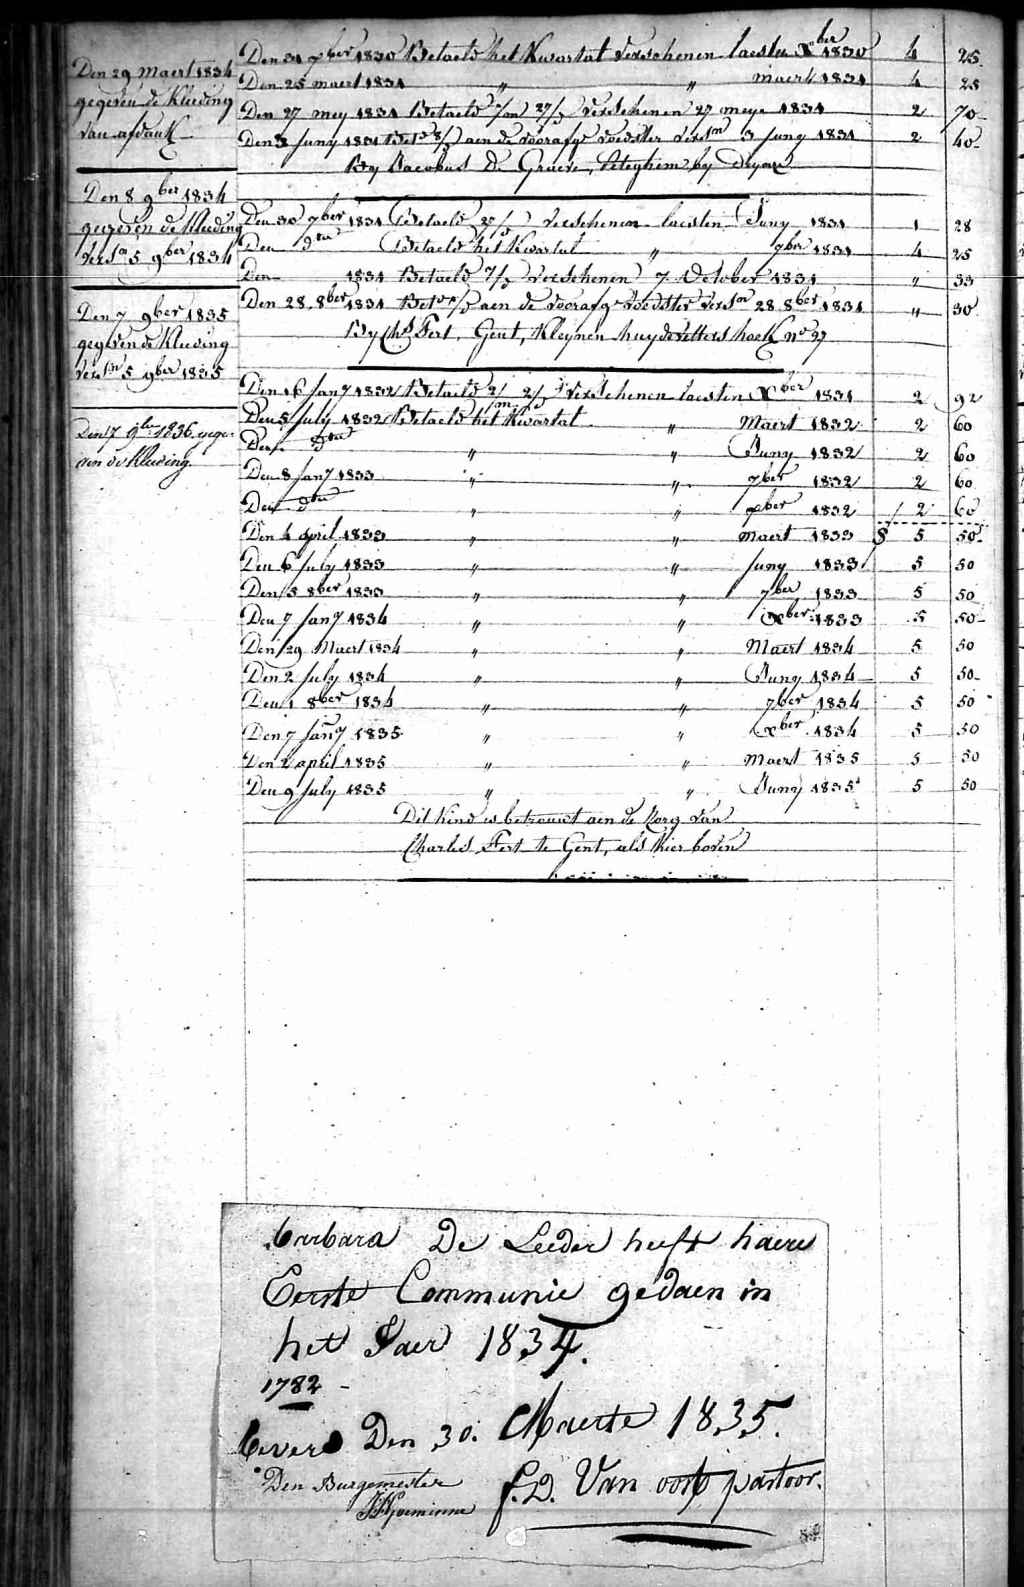 Den 29 Maert 1834
gegeven de Kleeding
van afdank
Den 8 9ber 1834
gegeven de Kleeding
versn 5 9ber 1834
Den 7 9ber 1835
gegeven de Kleeding
versn 5 9ber 1835
Den 7 9bre 1836 gege-
ven de Kleeding
Den 31 7ber 1830 Betaeld het Kwartat verschenen laestn Xber 1830 4 25
Den 25 maert 1831 " " maert 1831 4 25
Den 27 mey 1831 Betaeld verschenen 27 meye 1831 2 70
Den 3 Juny 1831 aen de voorafge voedster versn 3 Juny 1831 2 40
By Jacobus De Gruere, Peteghem by Deynze
Den 30 7ber 1831 Betaeld verschenen laesten Juny 1831 1 28
Den dto Betaeld het Kwartat " 7ber 1831 4 25
Den 1831 Betaeld 7/ verschenen 7 October 1831 " 33
Den 28 8ber 1831 aen de voorafge voedster versn 28 8ber 1831 " 30
By Chs Fert, Gent, Kleynen huydevettershoek no 37
Den 16 Jany 1832 Betaeld verschenen laesten Xber 1831 2 92
Den 5 July 1832 Betaeld het Kwartat " Maert 1832 2 60
Den dto " " Juny 1832 2 60
Den 8 Jany 1833 " " 7ber 1832 2 60
Den dto " " xber 1832 2 60
Den 4 april 1833 " " Maert 1833 5 50
Den 6 July 1833 " " Juny 1833 5 50
Den 5 8ber 1833 " " 7ber 1833 5 50
Den 7 Jany 1834 " " xber 1833 5 50
Den 29 Maert 1834 " " Maert 1834 5 50
Den 2 July 1834 " " Juny 1834 5 50
Den 1 8ber 1834 " " 7ber 1834 5 50
Den 7 Jany 1835 " " xber 1834 5 50
Den 2 april 1835 " " Maert 1835 5 50
Den 9 July 1835 " " Juny 1835 5 50
Dit Kind is betrouwt aen de Zorg van
Charles Fert te Gent, als hier boven
barbara De Leeder heeft haere
Eerste Communie gedaen in
het Jaer 1834.
1782
bevere Den 30. Maerte 1835.
Den Burgemester
f. D. Van oost pastoor.